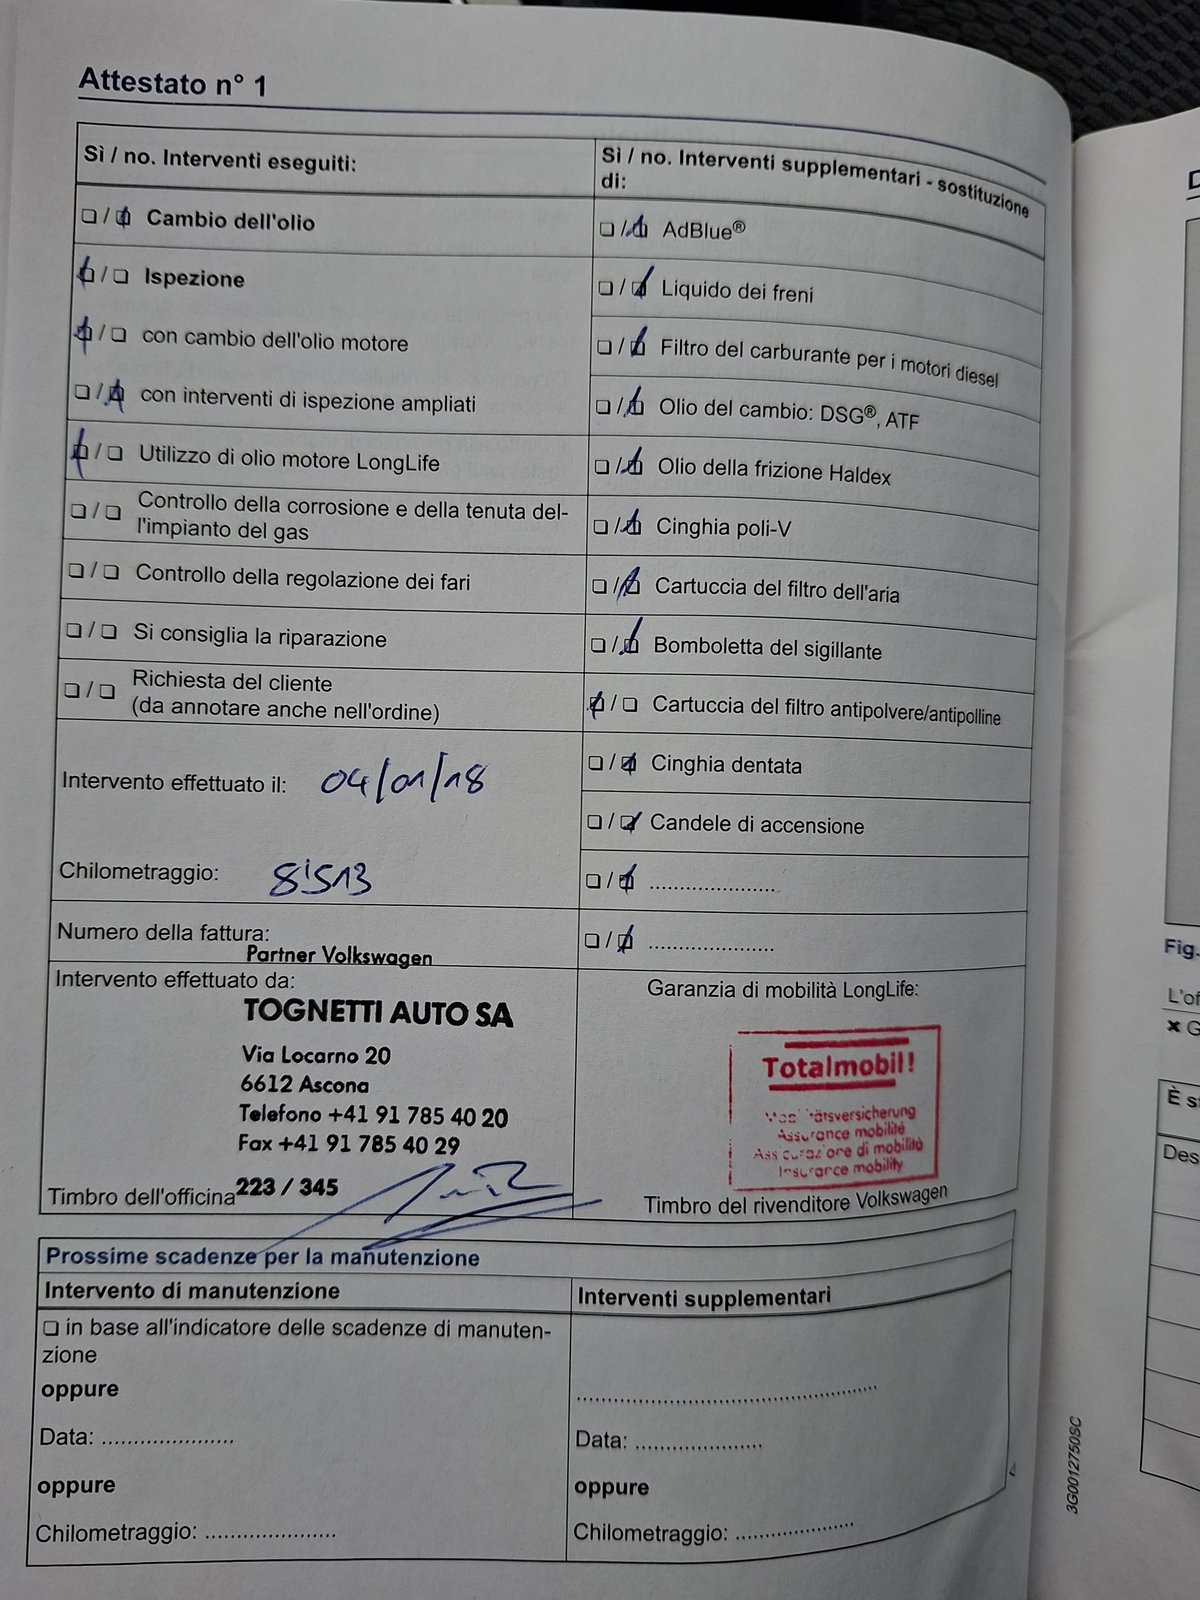 Attestato n° 1
Sì / no. Interventi eseguiti:
❏ / ❏ Cambio dell'olio
❏ / ❏ Ispezione
❏ / ❏ con cambio dell'olio motore
❏ / ❏ con interventi di ispezione ampliati
❏ / ❏ Utilizzo di olio motore LongLife
❏ / ❏ Controllo della corrosione e della tenuta del-
l'impianto del gas
❏ / ❏ Controllo della regolazione dei fari
❏ / ❏ Si consiglia la riparazione
❏ / ❏ Richiesta del cliente
(da annotare anche nell'ordine)
Intervento effettuato il: 04/01/18
Chilometraggio: 8'513
Numero della fattura:
Partner Volkswagen
Intervento effettuato da:
TOGNETTI AUTO SA
Via Locarno 20
6612 Ascona
Telefono +41 91 785 40 20
Fax +41 91 785 40 29
Timbro dell'officina 223 / 345
Sì / no. Interventi supplementari - sostituzione
di:
❏ / ❏ AdBlue®
❏ / ❏ Liquido dei freni
❏ / ❏ Filtro del carburante per i motori diesel
❏ / ❏ Olio del cambio: DSG®, ATF
❏ / ❏ Olio della frizione Haldex
❏ / ❏ Cinghia poli-V
❏ / ❏ Cartuccia del filtro dell'aria
❏ / ❏ Bomboletta del sigillante
❏ / ❏ Cartuccia del filtro antipolvere/antipolline
❏ / ❏ Cinghia dentata
❏ / ❏ Candele di accensione
❏ / ❏ ......................
❏ / ❏ ......................
Garanzia di mobilità LongLife:
Totalmobil!
Assurance mobilité
Assicurazione di mobilità
Insurance mobility
Timbro del rivenditore Volkswagen
Prossime scadenze per la manutenzione
Intervento di manutenzione
❏ in base all'indicatore delle scadenze di manuten-
zione
oppure
Data: ......................
oppure
Chilometraggio: ......................
Interventi supplementari
..................................................
Data: .....................
oppure
Chilometraggio: ....................
3G0012750SC
Fig.
L'of
✖ G
È s
Des